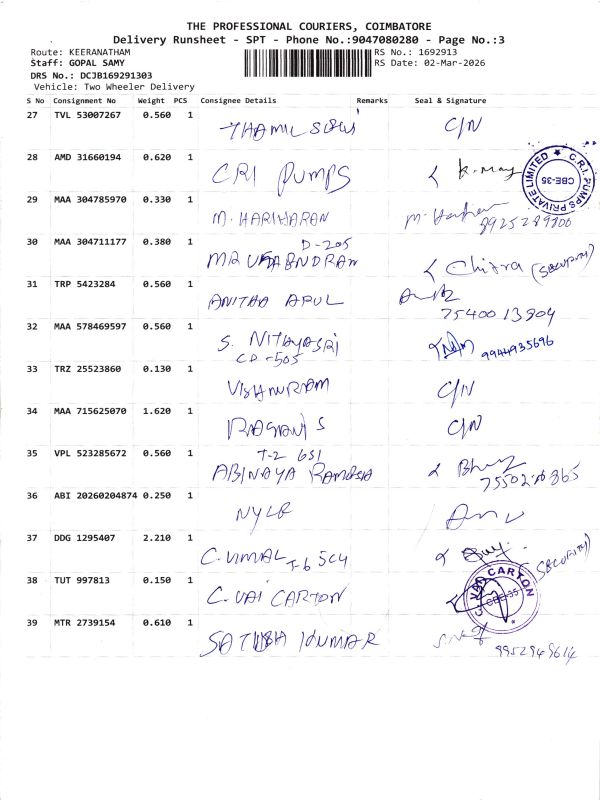 THE PROFESSIONAL COURIERS, COIMBATORE
Delivery Runsheet - SPT - Phone No.:9047080280 - Page No.:3
Route: KEERANATHAM
RS No.: 1692913
Staff: GOPAL SAMY
RS Date: 02-Mar-2026
DRS No.: DCJB169291303
Vehicle: Two Wheeler Delivery
S No Consignment No Weight PCS Consignee Details Remarks Seal & Signature
27 TVL 53007267 0.560 1 C/N
28 AMD 31660194 0.620 1 CRI PUMPS
C.R.I. PUMPS PRIVATE LIMITED
CBE-35
29 MAA 304785970 0.330 1 M. HARIHARAN
30 MAA 304711177 0.380 1 D-205
Chitra (SECURITY)
31 TRP 5423284 0.560 1 ANITHA
75400 13904
32 MAA 578469597 0.560 1 S. NITHYASRI
CD-505
9944935696
33 TRZ 25523860 0.130 1 VISHNURAM C/N
34 MAA 715625070 1.620 1 C/N
35 VPL 523285672 0.560 1 T-2 651
ABINAYA
36 ABI 20260204874 0.250 1
37 DDG 1295407 2.210 1 C. VIMAL T-6 504
(SECURITY)
38 TUT 997813 0.150 1 C. VAI CARTON
CARTON
CBE-35
39 MTR 2739154 0.610 1 SATHISH KUMAR
9952949614